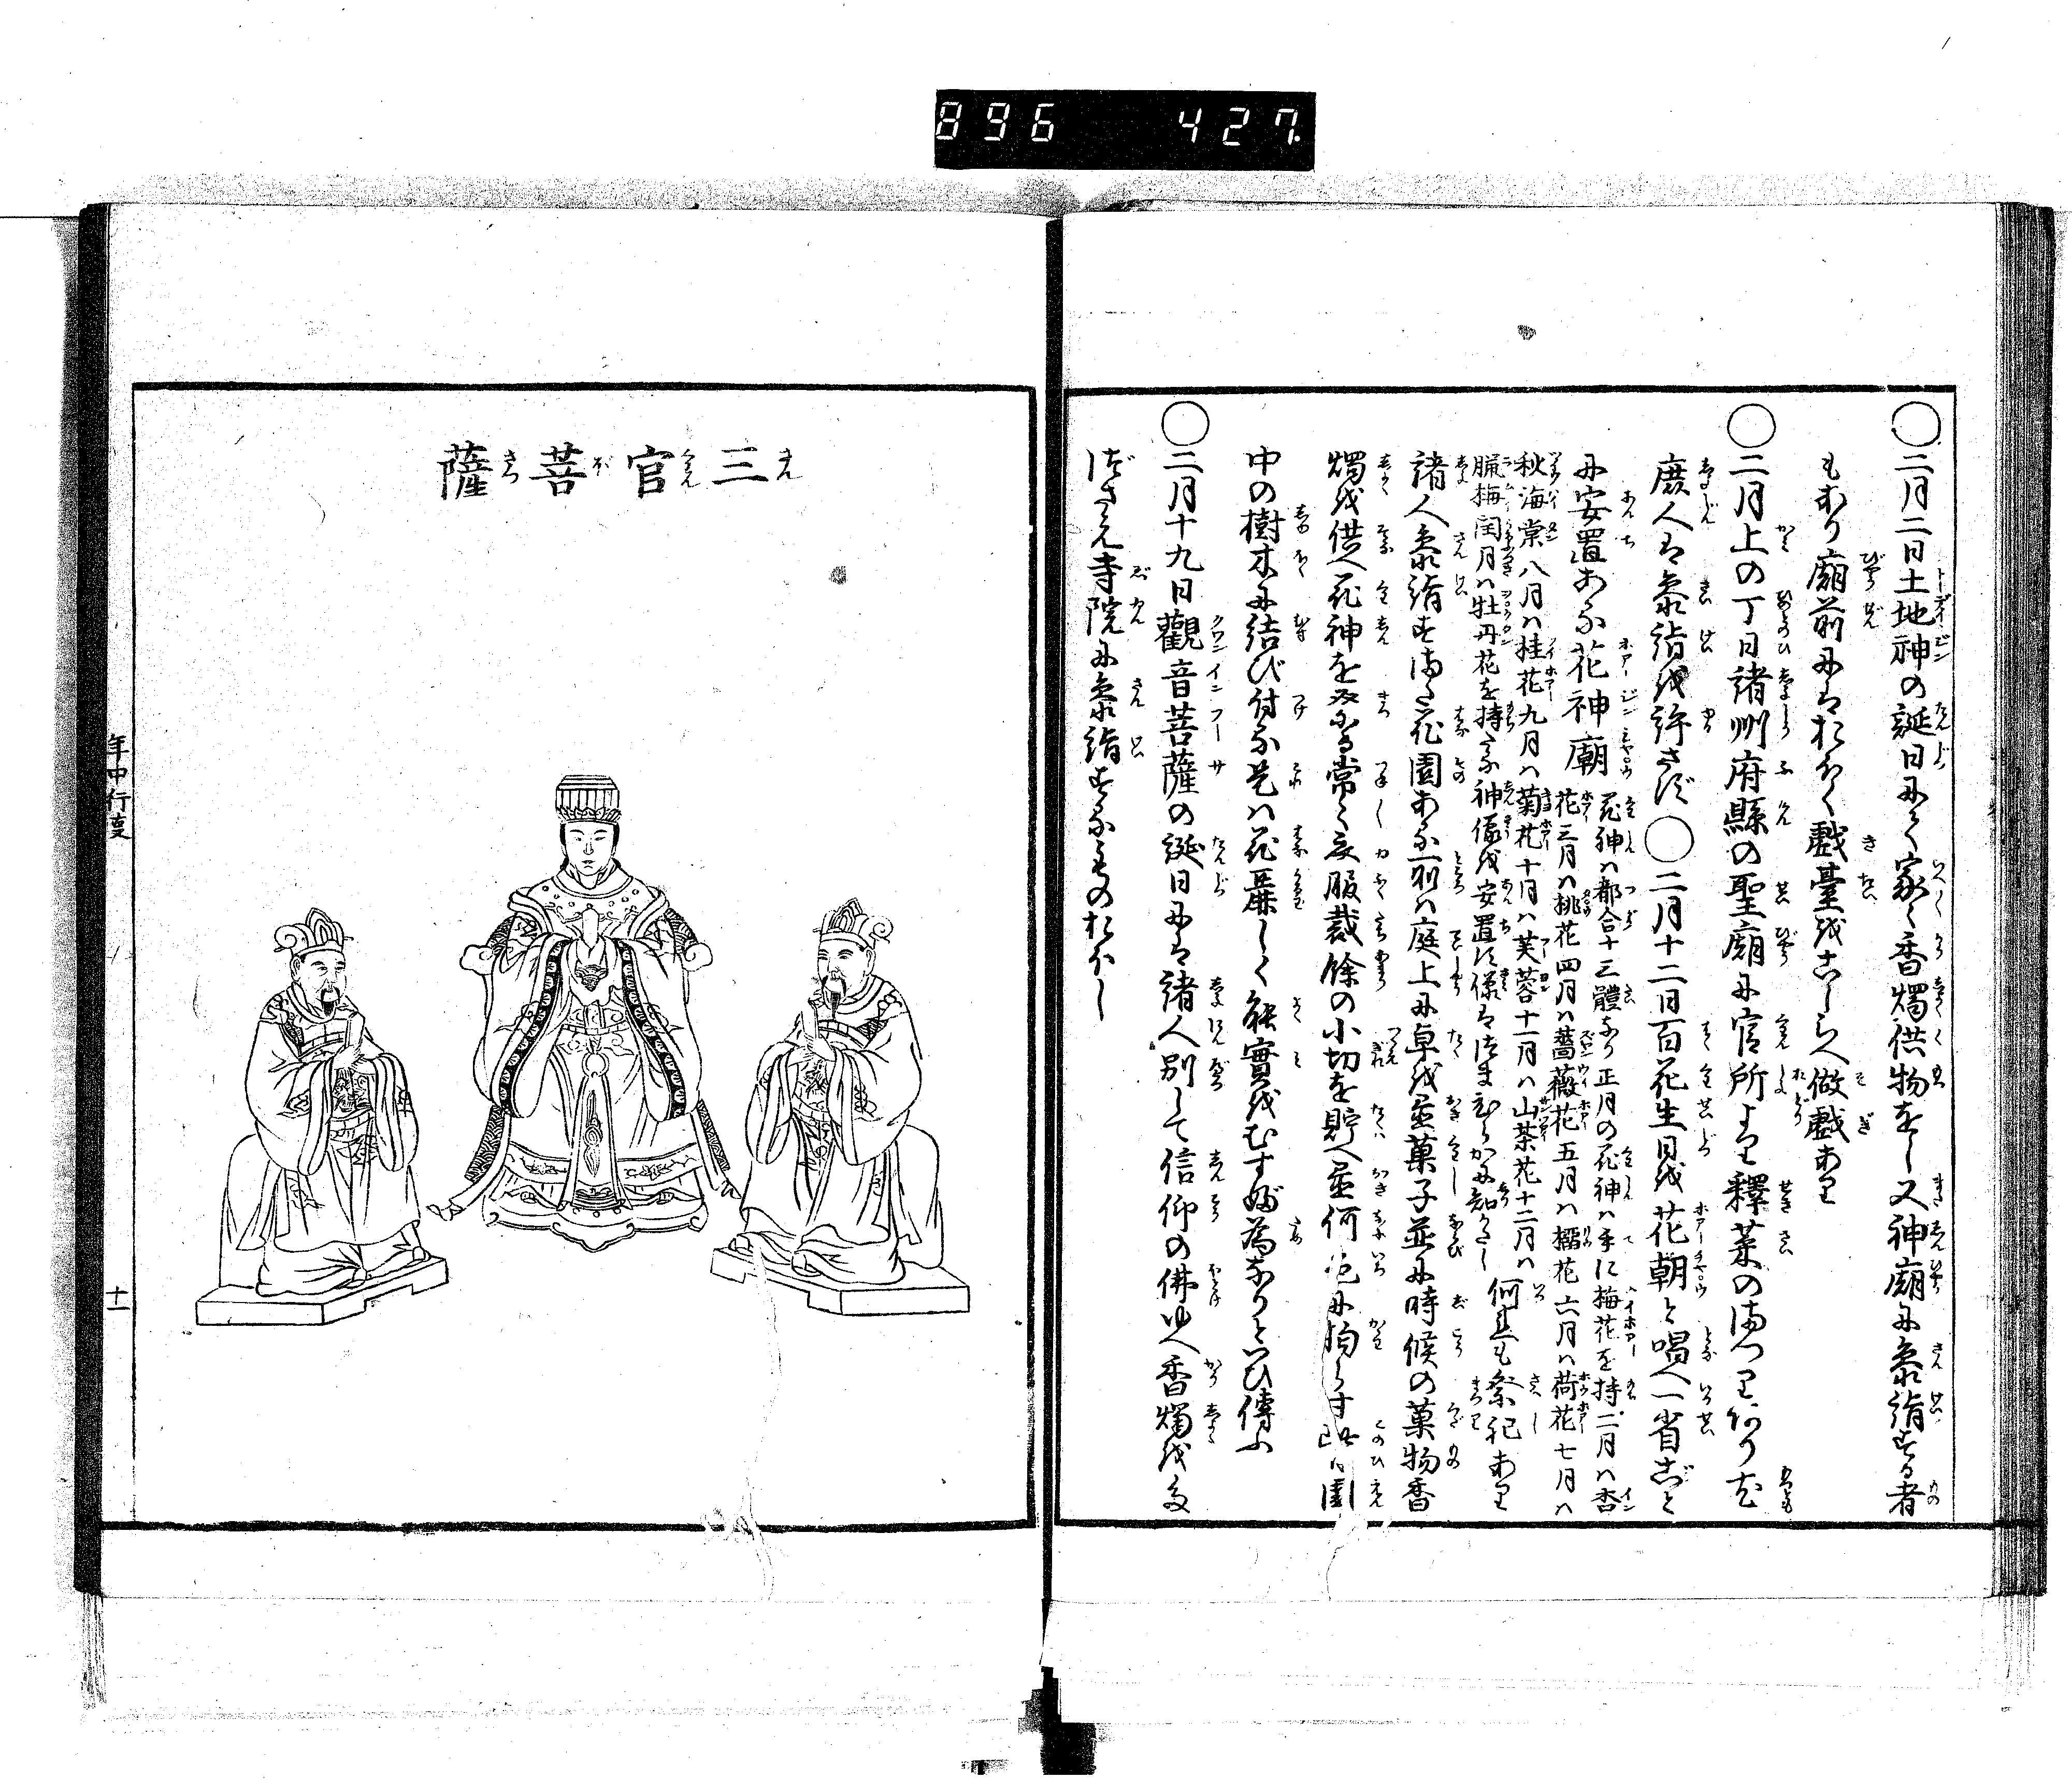 896 427
○二月二日土地神の誕日にて家〻香燭供物をし又神廟に參詣する者
もあり廟前にはおほく戲臺をこしらへ做戲あり
○二月上の丁日諸州府縣の聖廟に官所より釋菜のまつりあり尤
庶人は參詣を許さず○二月十二日百花生日を花朝と唱へ一省ごと
に安置ある花神廟
花神ハ都合十三體あり正月の花神ハ手に梅花を持二月ハ杏
花三月ハ桃花四月ハ薔薇花五月ハ榴花六月ハ荷花七月ハ
秋海棠八月ハ桂花九月ハ菊花十月ハ芙蓉十一月ハ山茶花十二月ハ
臘梅閏月ハ牡丹花を持たる神像を安置す
何も祭祀あり
諸人參詣すまた花園ある所ハ庭上に卓を置菓子並に時候の菓物香
燭を供へ花神を祭る常〻衣服裁餘の小切を貯へ置何に拘らす此日園
中の樹木に結び付る是ハ花麗しく能實をむすぶ為なりといひ傳ふ
○二月十九日觀音菩薩の誕日には諸人別して信仰の佛ゆへ香燭を
たづさえ寺院に參詣するものおほし
三官菩薩
年中行事
十一